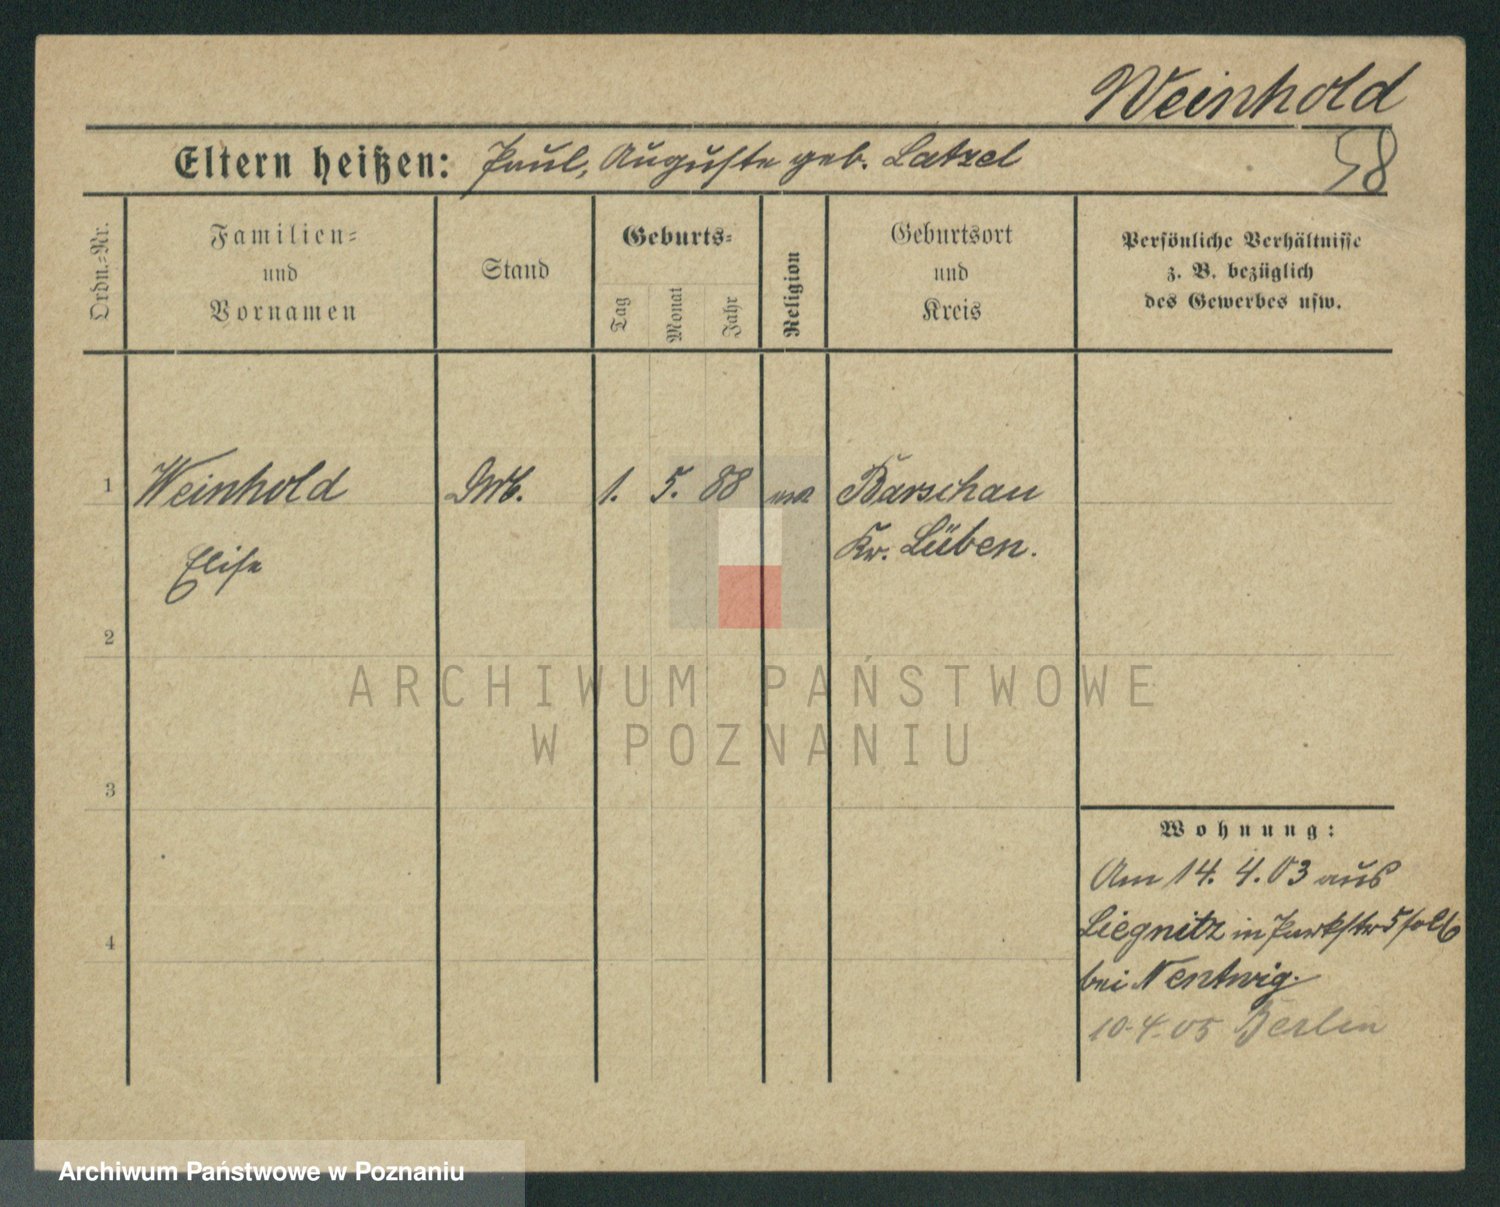 Weinhold
Eltern heißen: Paul, Auguste geb. Latzel
58
Ordn.=Nr.
Familien=
und
Vornamen
Stand
Geburts=
Tag
Monat
Jahr
Religion
Geburtsort
und
Kreis
Persönliche Verhältnisse
z. B. bezüglich
des Gewerbes usw.
1 Weinhold 1. 5. 88 Barschau
Elise Kr. Lüben.
2
3
4
Wohnung:
Am 14. 4. 03 aus
Liegnitz in Parkstr 5
bei Nentwig.
10-4-05 Berlin
ARCHIWUM PAŃSTWOWE
W POZNANIU
Archiwum Państwowe w Poznaniu